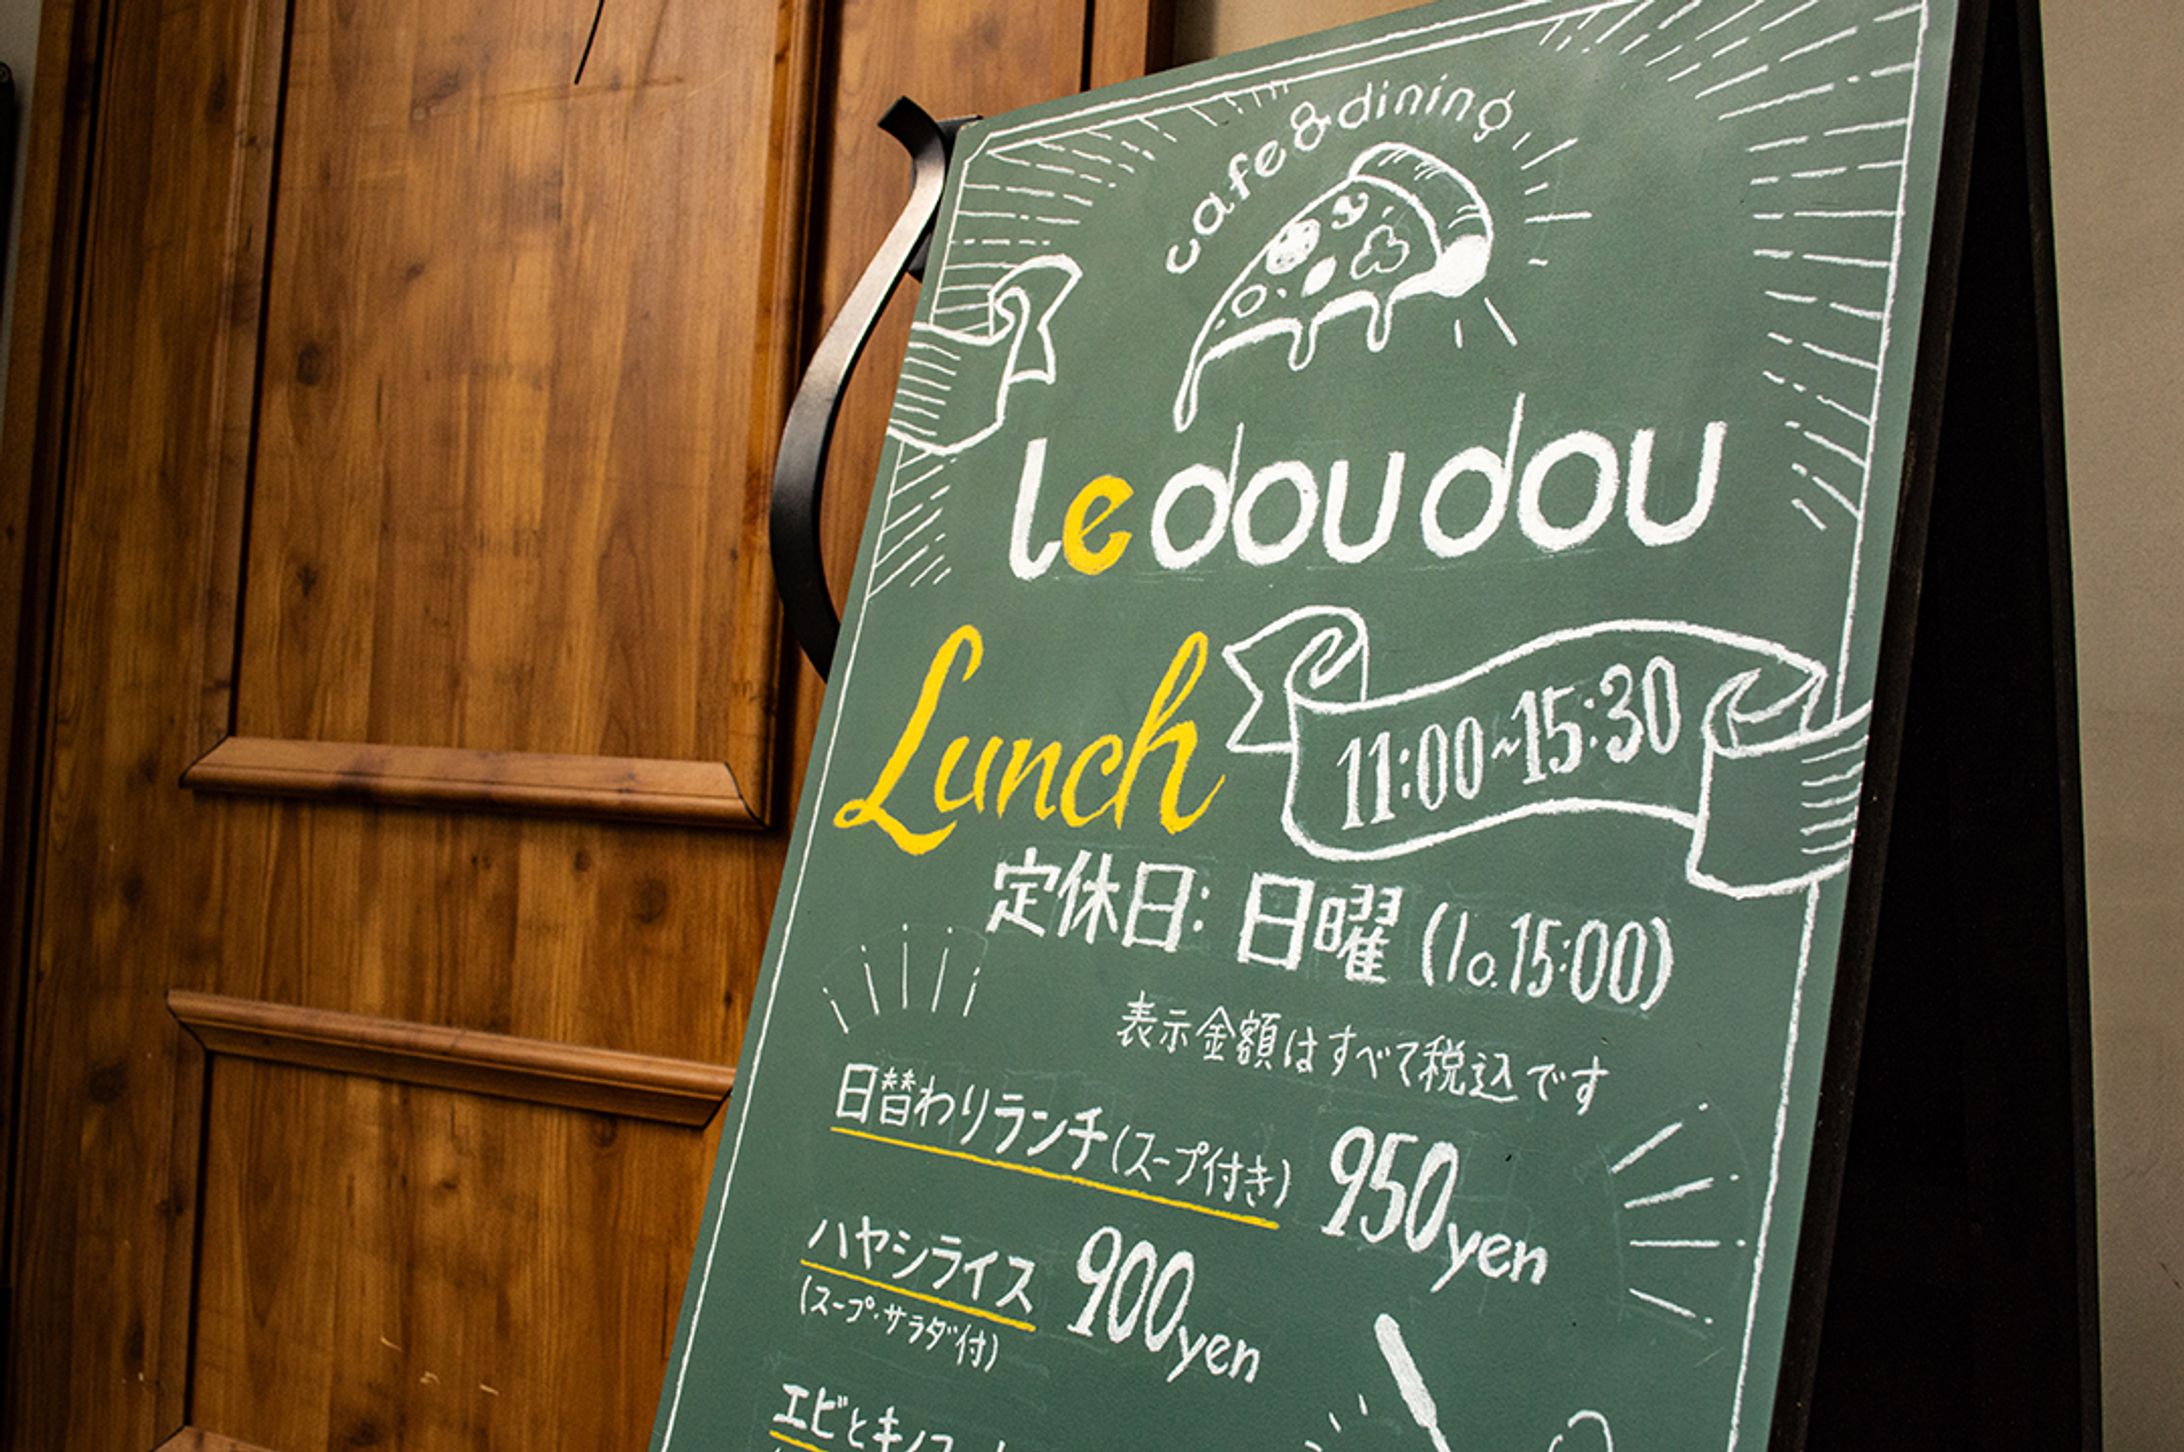 cafe & dining
le dou dou
Lunch 11:00~15:30
定休日: 日曜 (lo.15:00)
表示金額はすべて税込です
日替わりランチ(スープ付き) 950yen
ハヤシライス 900yen
(スープ・サラダ付)
エビとキノコ